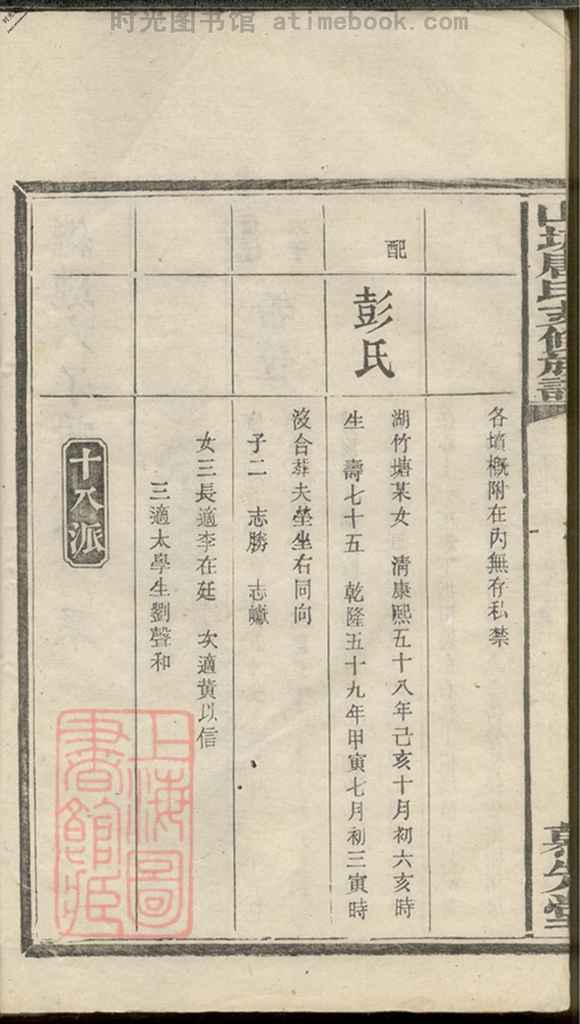 时光图书馆 atimebook.com
周氏支修族譜
各墳概附在內無存私禁
配
彭氏
湖竹塘某女 清康熙五十八年己亥十月初六亥時
生 壽七十五 乾隆五十九年甲寅七月初三寅時
沒合葬夫塋坐右同向
子二 志勝 志
女三長適李在廷 次適黃以信
三適太學生劉聲和
十八派
上海圖
書館藏